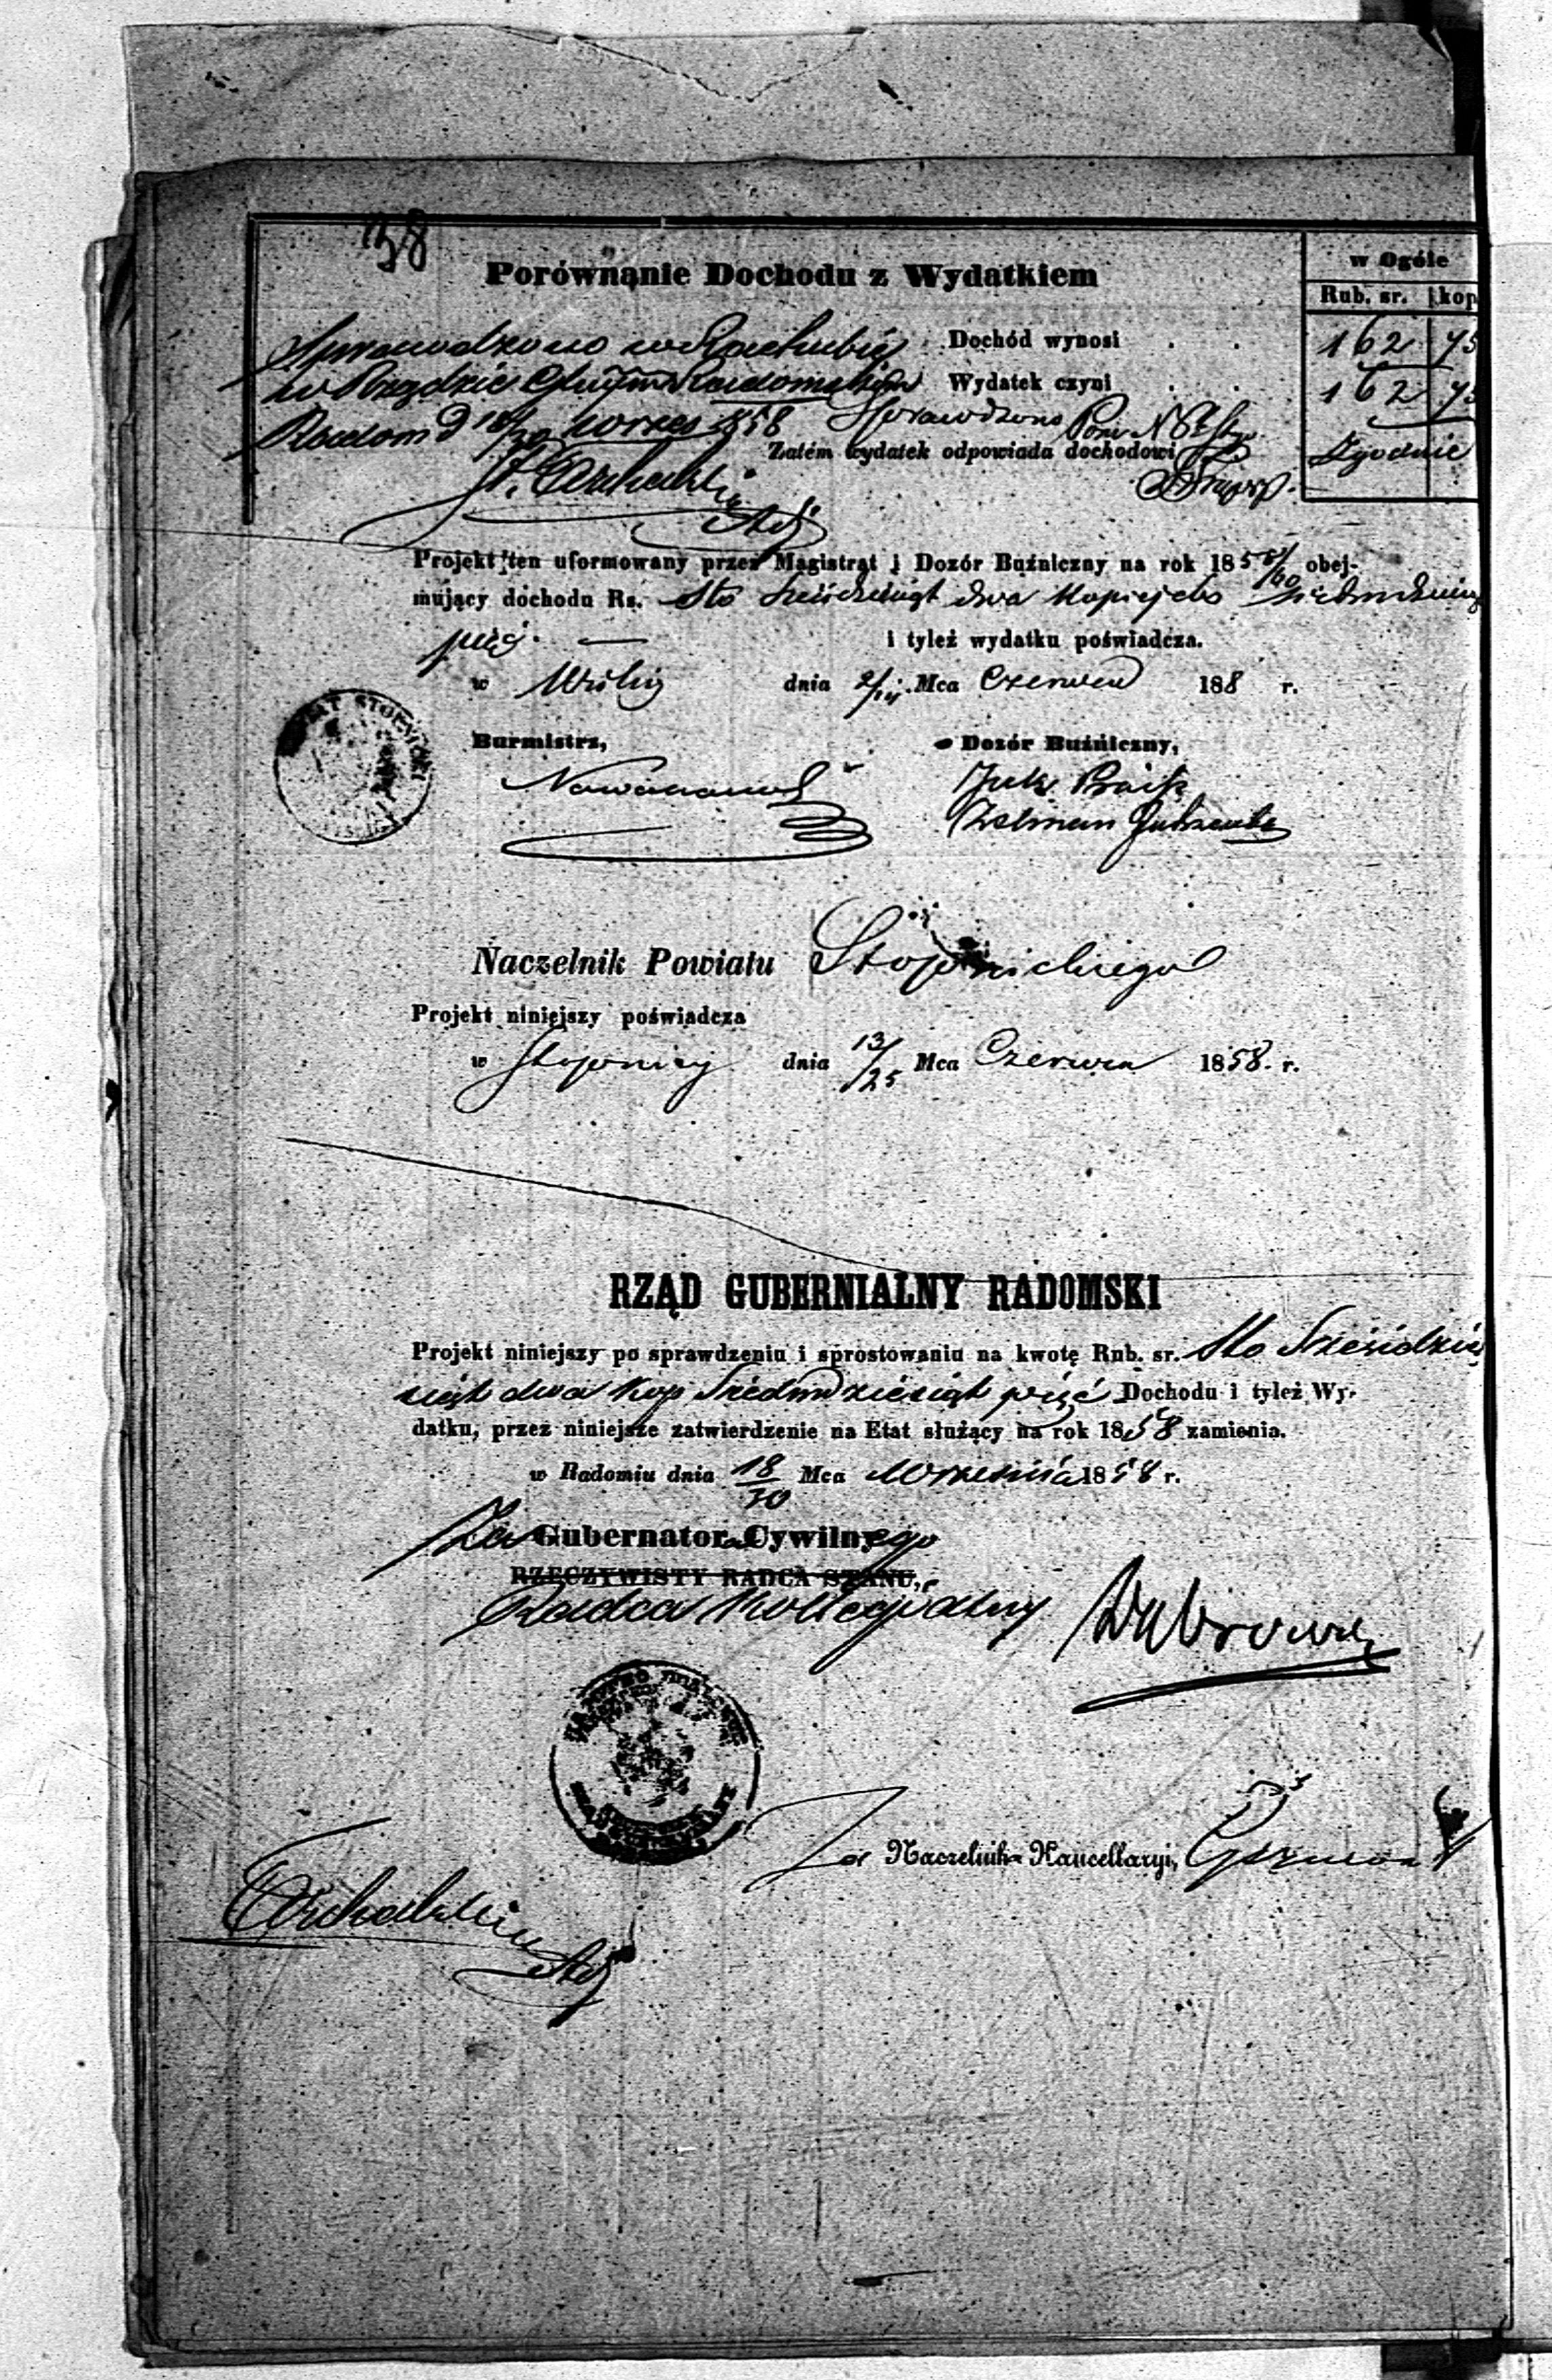 38
Porównanie Dochodu z Wydatkiem
w Ogóle
Rub. sr. kop
Sprawdzono w Rachubie Dochód wynosi . . 162 75
w Rządzie Radomskim Wydatek czyni . . 162 75
Radom d 18/30 1858 Sprawdzono
Zatém wydatek odpowiada dochodowi Zgodnie
Projekt ten uformowany przez Magistrat i Dozór Bużniczny na rok 1858/60 obej-
mujący dochodu Rs. Sto sześćdziesiąt dwa kopiejek siedmdziesiąt
pięć. — i tyleż wydatku poświadcza.
w dnia 2/14 Mca Czerwca 188 r.
Burmistrz, Dozór Bużniczny,
Naczelnik Powiatu Stopnickiego
Projekt niniejszy poświadcza
w Stopnicy dnia 13/25 Mca Czerwca 1858. r.
RZĄD GUBERNIALNY RADOMSKI
Projekt niniejszy po sprawdzeniu i sprostowaniu na kwotę Rub. sr. Sto Sześćdzie
siąt dwa kop Siedmdziesiąt pięć Dochodu i tyleż Wy-
datku, przez niniejsze zatwierdzenie na Etat służący na rok 1858 zamienia.
w Radomiu dnia 18/30 Mca Września 1858 r.
Za Gubernatora Cywilnego
RZECZYWISTY RADCA STANU,
Radca Kollegialny
Za Naczelnika Kancellaryi,